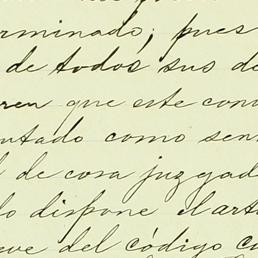 rminado; pues
de todos sus de
ren que este conv
utado como sen
l de cosa juzgad
lo dispone el art
eve del código c